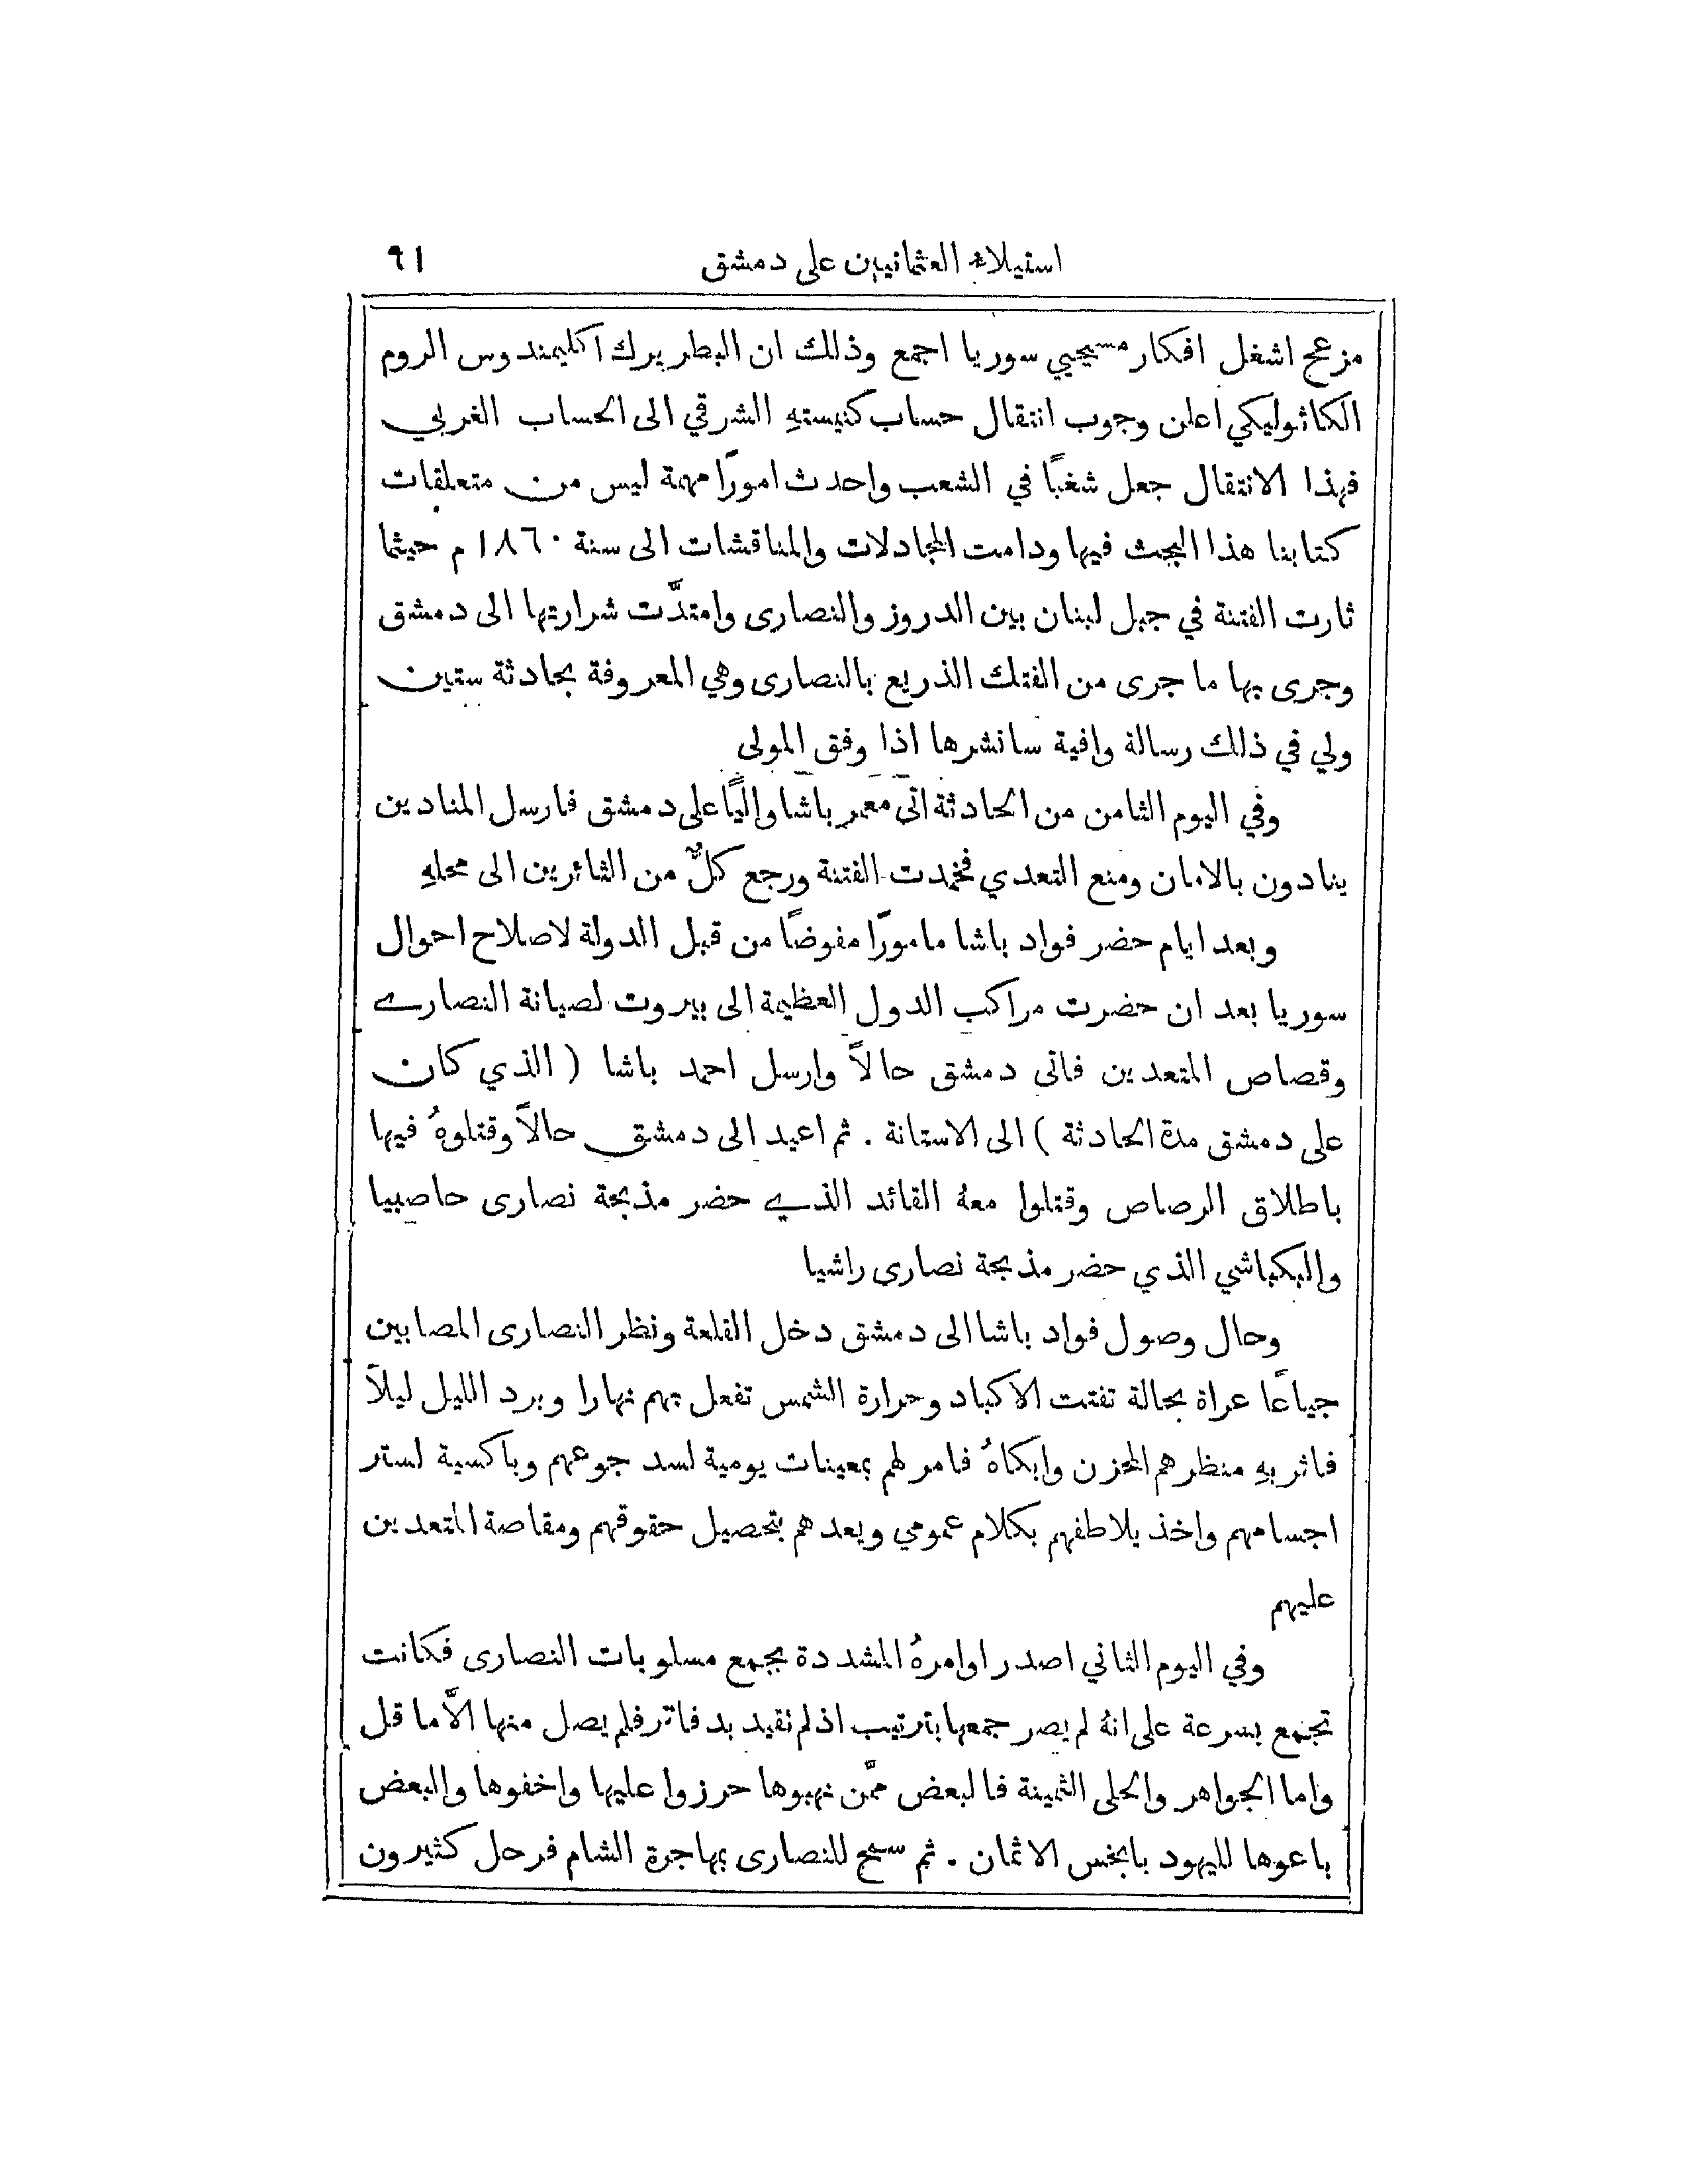 استيلاء العثمانيين على دمشق ٩١
مزعج اشغل افكار مسيحيي سوريا اجمع وذلك ان البطريرك اكليمندوس الروم
الكاثوليكي اعلن وجوب انتقال حساب كنيستهِ الشرقي الى الحساب الغربي
فهذا الانتقال جعل شغبًا في الشعب واحدث امورًا مهمة ليس من متعلقات
كتابنا هذا البحث فيها ودامت المجادلات والمناقشات الى سنة ١٨٦٠ م حيثما
ثارت الفتنة في جبل لبنان بين الدروز والنصارى وامتدَّت شرارتها الى دمشق
وجرى بها ما جرى من الفتك الذريع بالنصارى وهي المعروفة بحادثة ستين
ولي في ذلك رسالة وافية سانشرها اذا وفق المولى
وفي اليوم الثامن من الحادثة اتى معمر باشا واليًا على دمشق فارسل المنادين
ينادون بالامان ومنع التعدي فخمدت الفتنة ورجع كلٌّ من الثائرين الى محلهِ
وبعد ايام حضر فواد باشا مامورًا مفوضًا من قبل الدولة لاصلاح احوال
سوريا بعد ان حضرت مراكب الدول العظيمة الى بيروت لصيانة النصارى
وقصاص المتعدين فاتى دمشق حالاً وارسل احمد باشا ( الذي كان
على دمشق مدة الحادثة ) الى الاستانة . ثم اعيد الى دمشق حالاً وقتلوهُ فيها
باطلاق الرصاص وقتلوا معهُ القائد الذي حضر مذبحة نصارى حاصبيا
والبكباشي الذي حضر مذبحة نصارى راشيا
وحال وصول فواد باشا الى دمشق دخل القلعة ونظر النصارى المصابين
جياعًا عراة بحالة تفتت الاكباد وحرارة الشمس تفعل بهم نهارا وبرد الليل ليلاً
فاثر بهِ منظرهم المحزن وابكاهُ فامر لهم بمعينات يومية لسد جوعهم وباكسية لستر
اجسامهم واخذ يلاطفهم بكلام عمومي ويعدهم بتحصيل حقوقهم ومقاصة المتعدين
عليهم
وفي اليوم الثاني اصدر اوامرهُ المشددة بجمع مسلوبات النصارى فكانت
تجتمع بسرعة على انهُ لم يصر جمعها بترتيب اذ لم تقيد بدفاتر فلم يصل منها الاَّ ما قل
واما الجواهر والحلى الثمينة فالبعض ممَّن نهبوها حرزوا عليها واخفوها والبعض
باعوها لليهود بابخس الاثمان . ثم سمح للنصارى بمهاجرة الشام فرحل كثيرون